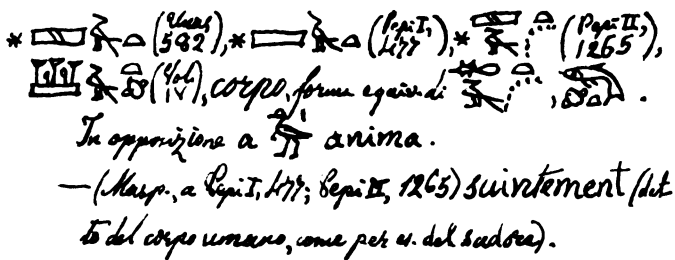 * (Unas 582), * (Pepi I, 477), * (Pepi II, 1265),
(Vol. IV), corpo, forme equiv. di , .
In opposizione a anima.
— (Masp., a Pepi I, 477; Pepi II, 1265) suintement (det-
to del corpo umano, come per es. del sudore).